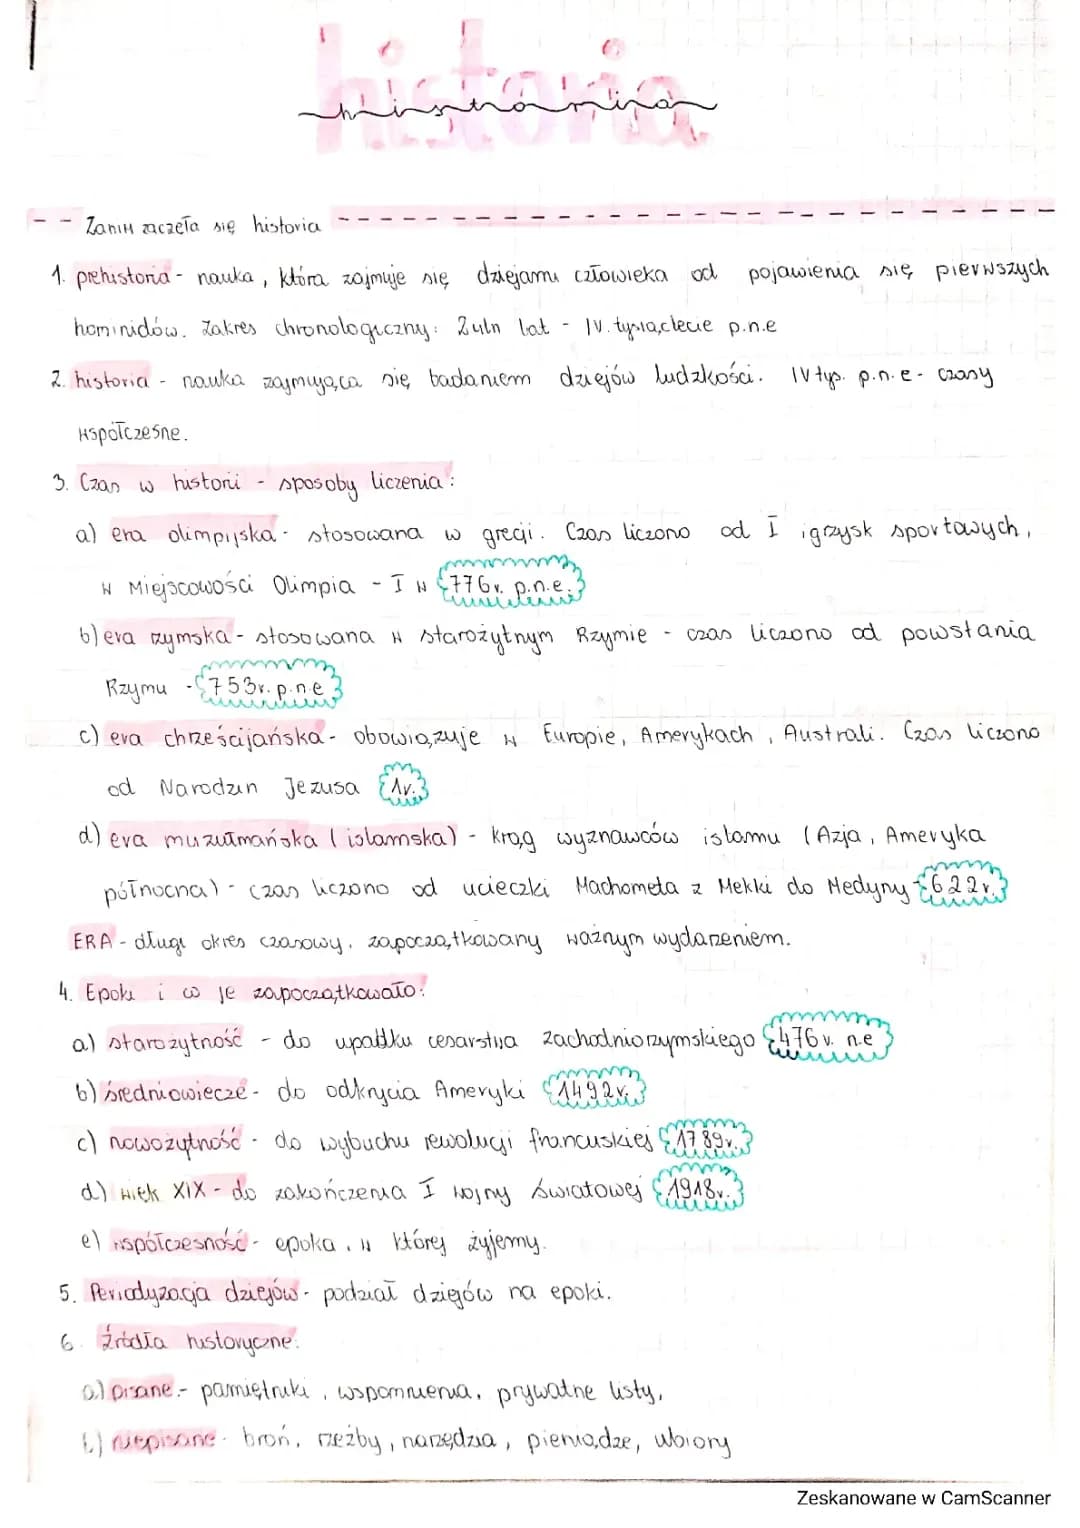 historia
historia
Zanim zaczęła się historia
1. prehistoria - nauka, która zajmuje się dziejami człowieka od pojawienia się pierwszych
hominidów. Zakres chronologiczny: 2mln lat - IV. tysiąclecie p.n.e
2. historia - nauka zajmująca się badaniem dziejów ludzkości. IV tys. p.n.e - czasy
współczesne.
3. Czas w histori - sposoby liczenia:
a) era olimpijska - stosowana w grecji. Czas liczono od I igrzysk sportowych,
w Miejscowości Olimpia - I w 776r. p.n.e.
b) era rzymska - stosowana w starożytnym Rzymie - czas liczono od powstania
Rzymu - 753r. p.n.e
c) era chrześcijańska - obowiązuje w Europie, Amerykach, Australi. Czas liczono
od Narodzin Jezusa 1r.
d) era muzułmańska (islamska) - krąg wyznawców islamu (Azja, Ameryka
północna) - czas liczono od ucieczki Machometa z Mekki do Medyny - 622r.
ERA - długi okres czasowy, zapoczątkowany ważnym wydarzeniem.
4. Epoki i co je zapoczątkowało:
a) starożytność - do upadku cesarstwa zachodniorzymskiego 476r. n.e
b) średniowiecze - do odkrycia Ameryki 1492r.
c) nowożytność - do wybuchu rewolucji francuskiej 1789r.
d) wiek XIX - do zakończenia I wojny światowej 1918r.
e) współczesność - epoka, w której żyjemy.
5. Periodyzacja dziejów - podział dziejów na epoki.
6. źródła historyczne:
a) pisane - pamiętniki, wspomnienia, prywatne listy,
b) niepisane - broń, rzeźby, narzędzia, pieniądze, ubiory
Zeskanowane w CamScanner